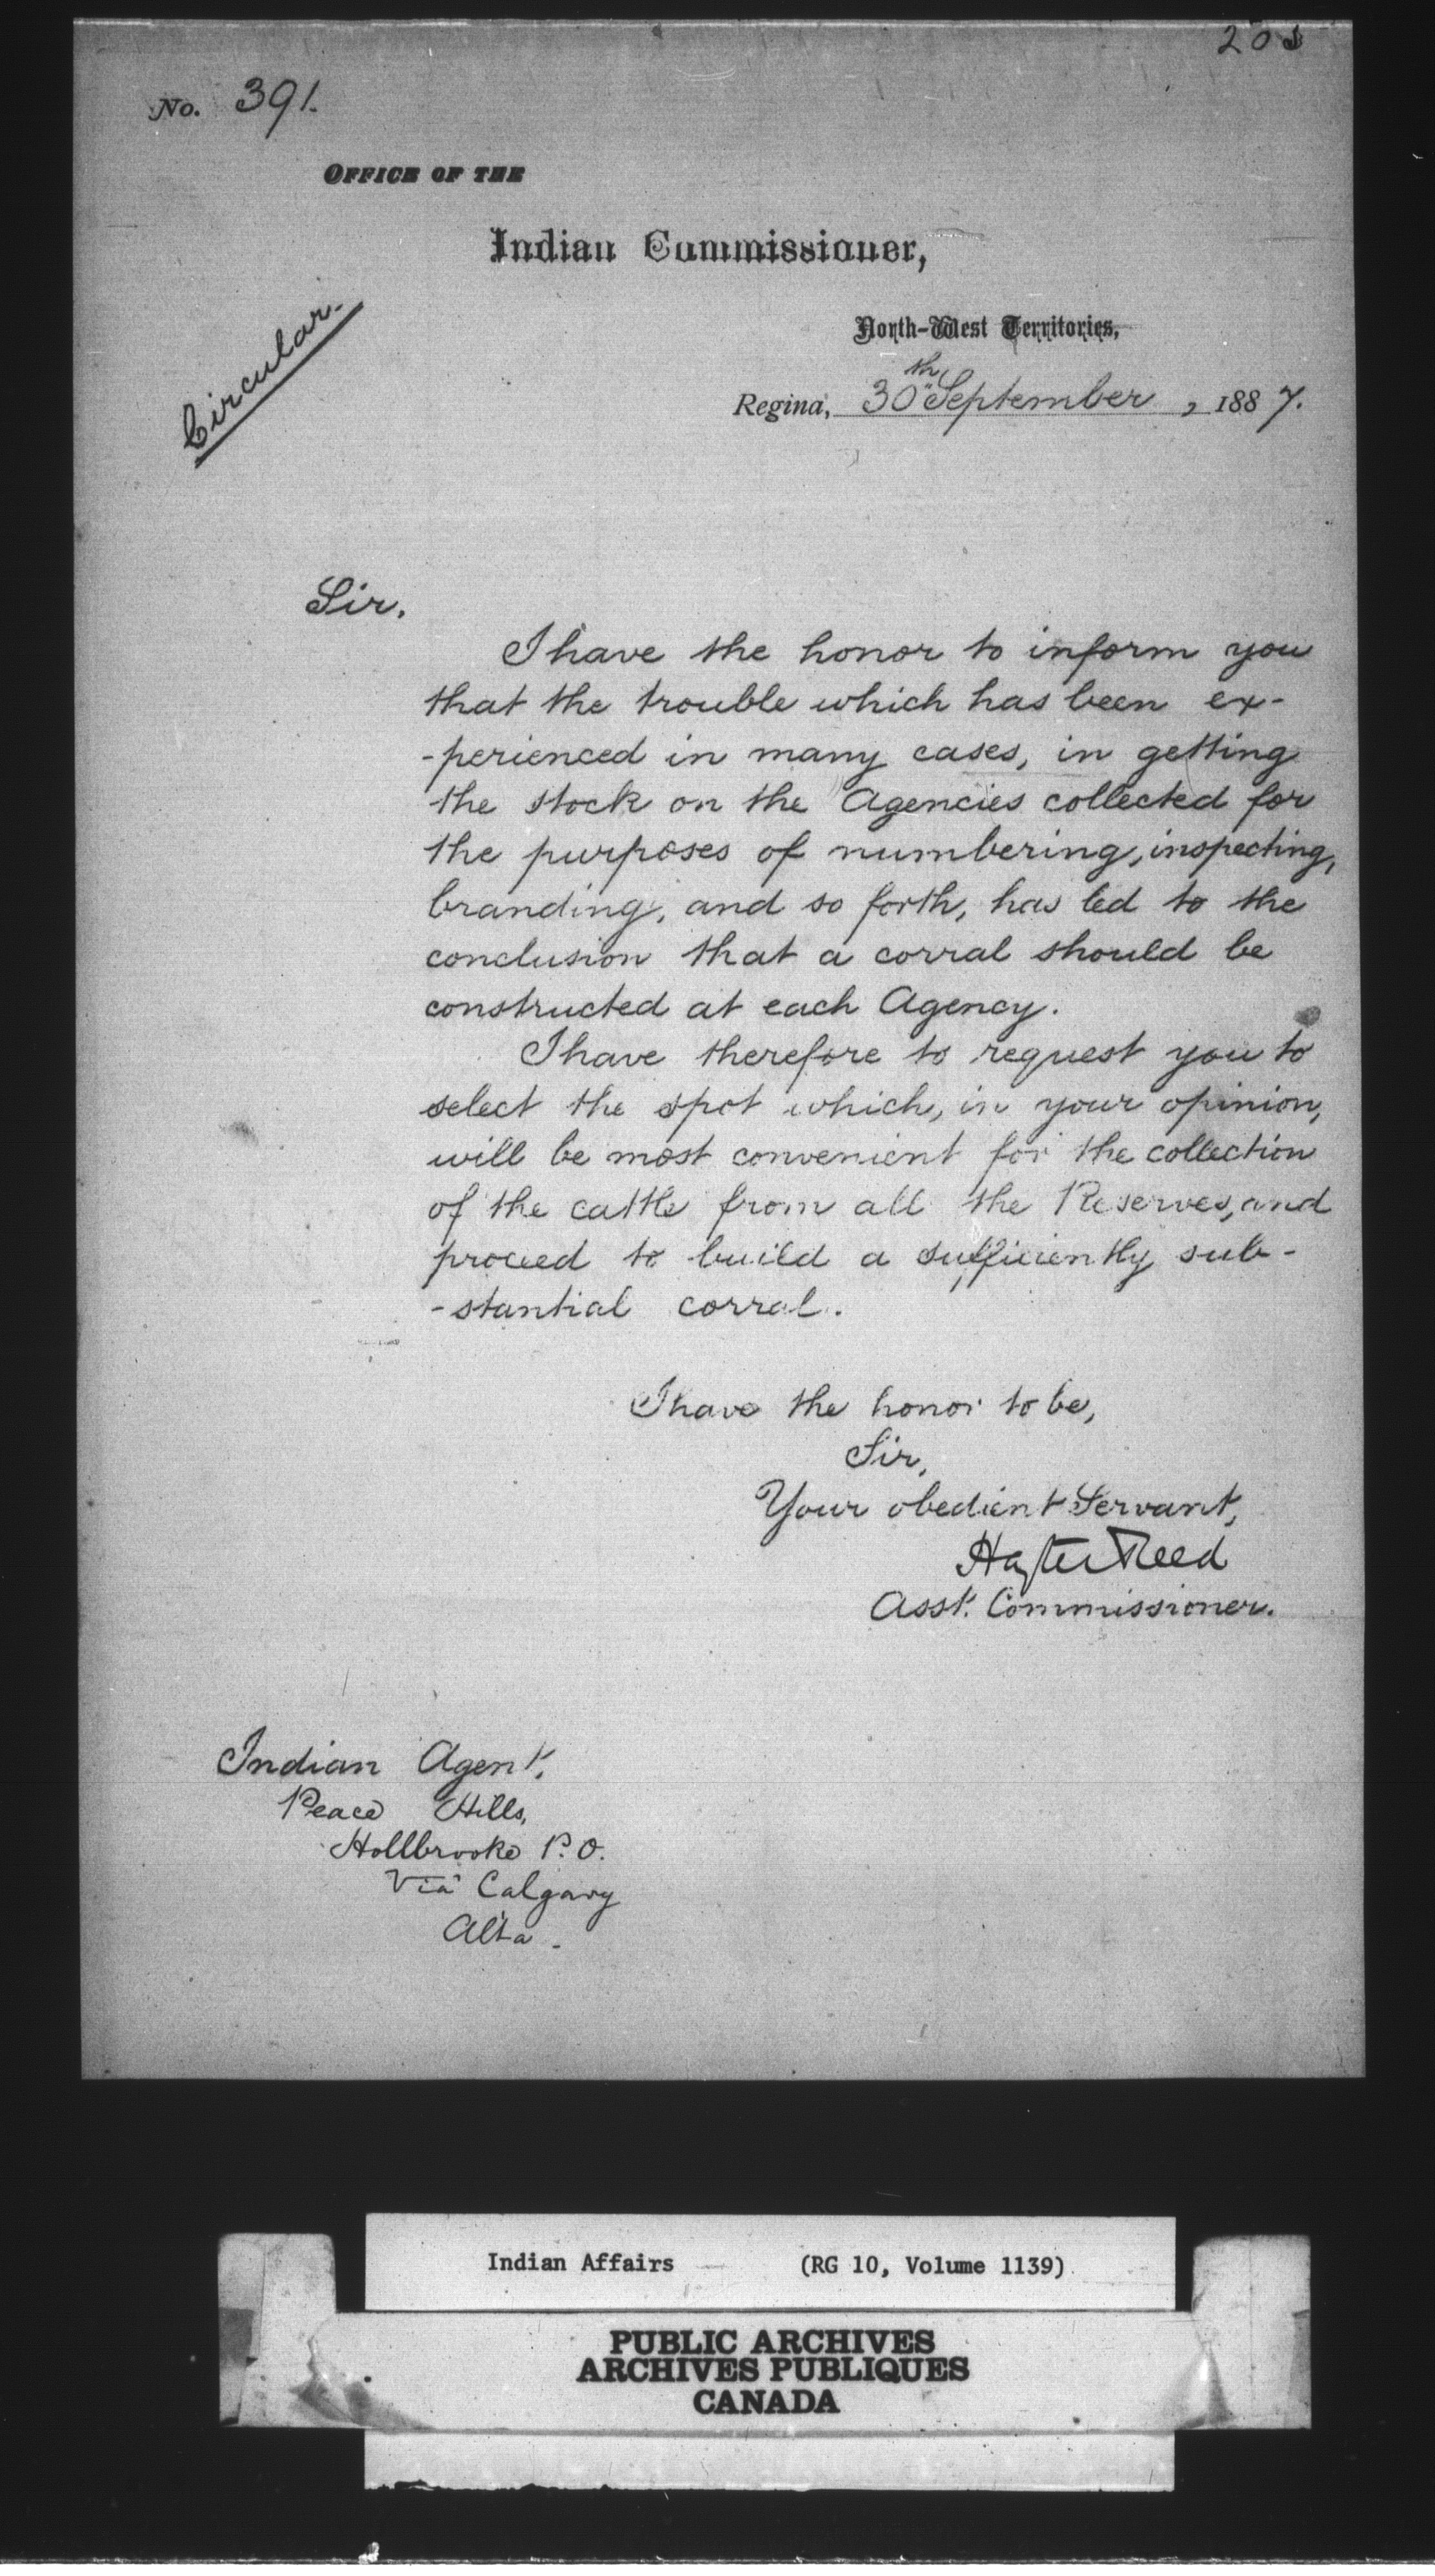 No. 391.
OFFICE OF THE
Indian Commissioner,
North-West Territories,
Circular.
Regina, 30th September, 1887.
Sir,
I have the honor to inform you
that the trouble which has been ex-
-perienced in many cases, in getting
the stock on the Agencies collected for
the purposes of numbering, inspecting,
branding, and so forth, has led to the
conclusion that a corral should be
constructed at each Agency.
I have therefore to request you to
select the spot which, in your opinion,
will be most convenient for the collection
of the cattle from all the Reserves, and
proceed to build a sufficiently sub-
-stantial corral.
I have the honor to be,
Sir,
Your obedient Servant,
Hayter Reed
Asst. Commissioner.
Indian Agent,
Peace Hills,
Hollbrooke P.O.
Via Calgary
Alta.
Indian Affairs (RG 10, Volume 1139)
PUBLIC ARCHIVES
ARCHIVES PUBLIQUES
CANADA